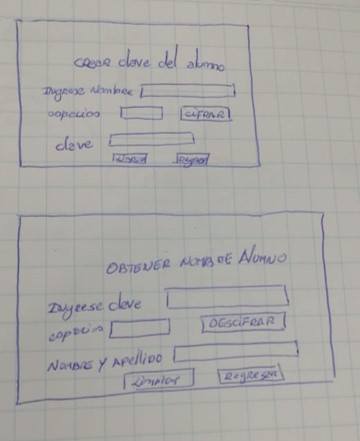 CREAR clave del alumno
Ingrese Nombre
CIFRAR
clave
OBTENER NOMBRE Alumno
Ingrese clave
DESCIFRAR
NOMBRE Y Apellido
Limpiar Regresar